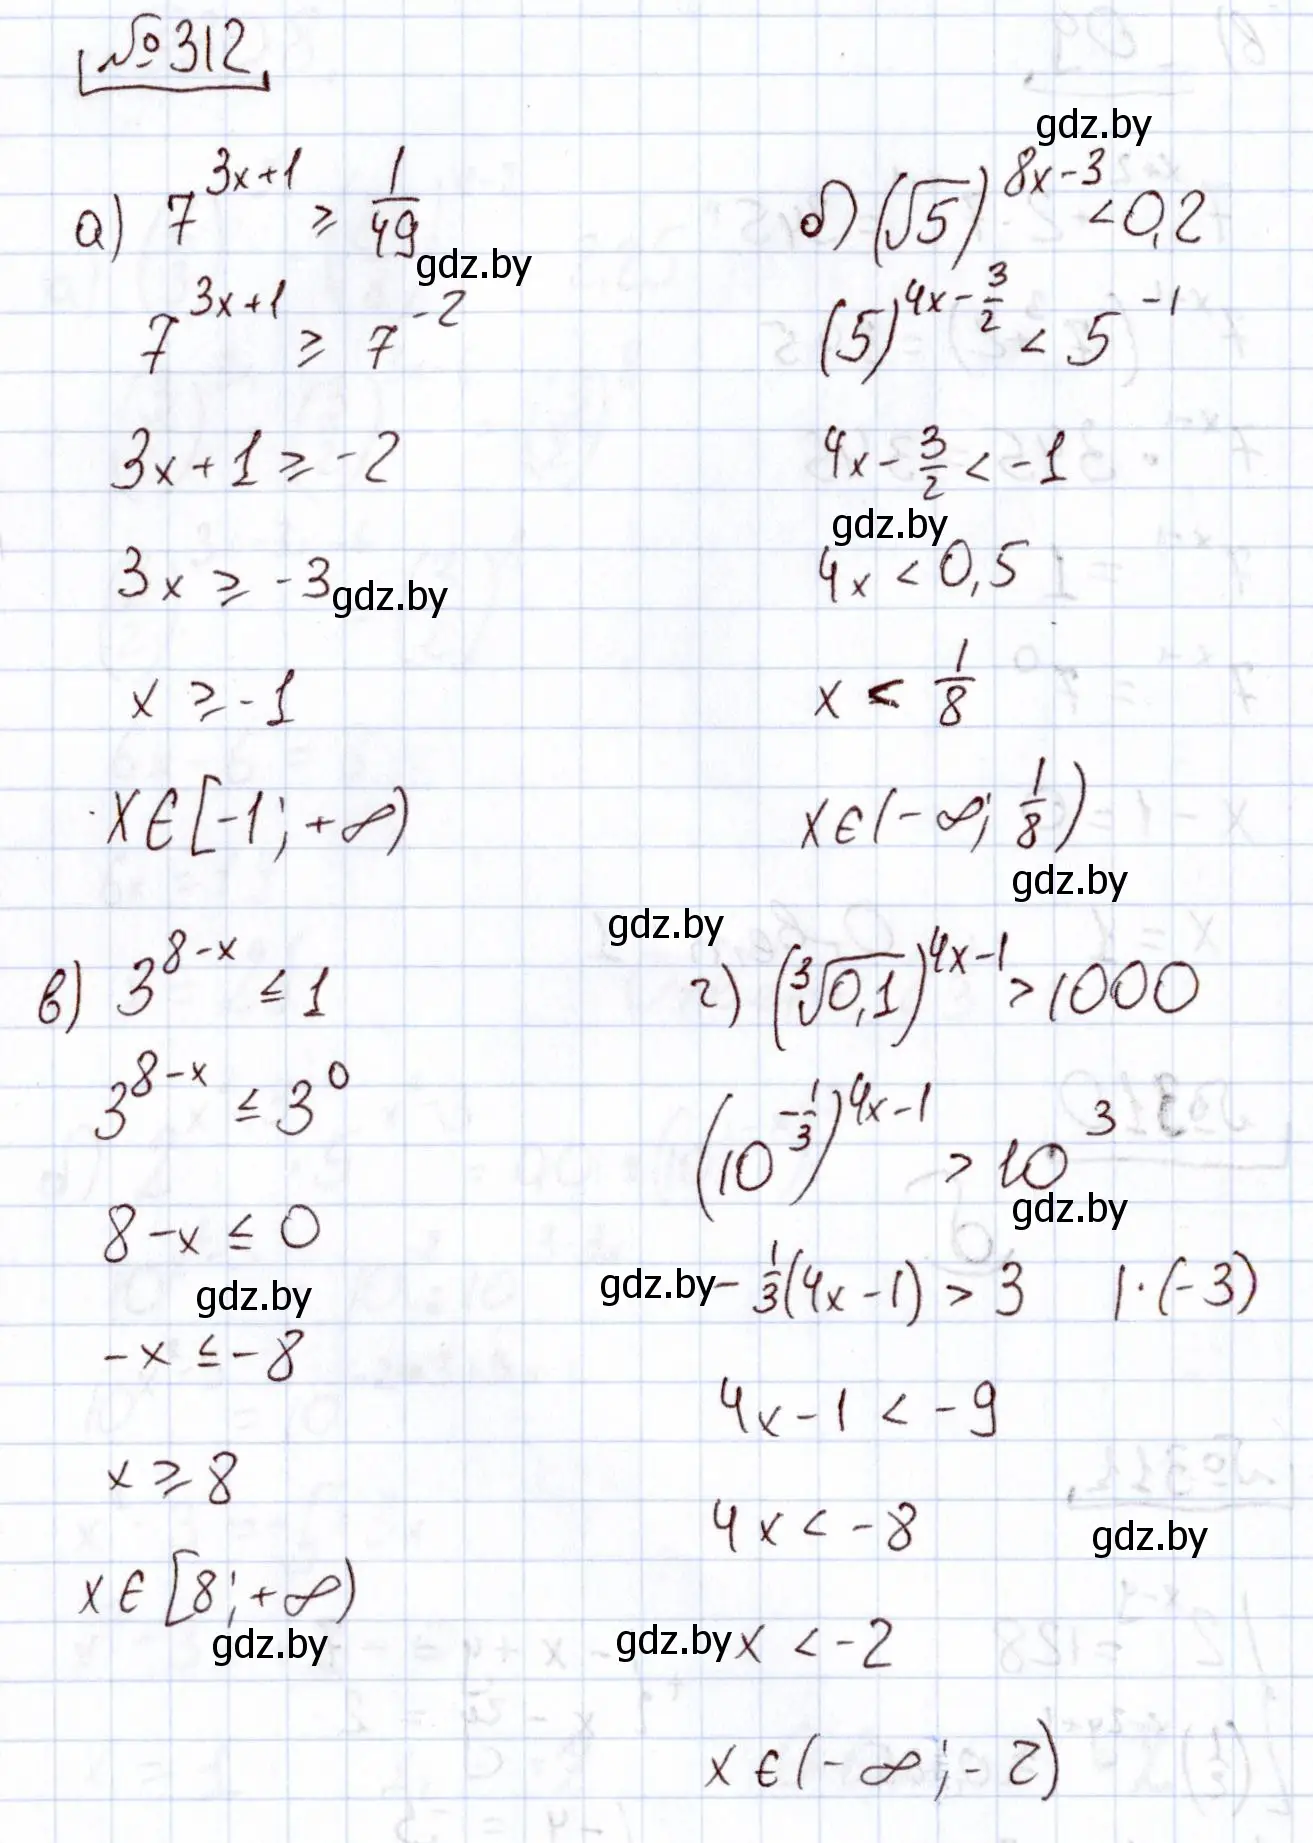 №312
а) 7^(3x+1) ≥ 1/49
gdz.by
7^(3x+1) ≥ 7^(-2)
3x+1 ≥ -2
3x ≥ -3
gdz.by
x ≥ -1
x∈[-1; +∞)
gdz.by
б) (√5)^(8x-3) < 0,2
(5)^(4x-3/2) < 5^(-1)
4x - 3/2 < -1
gdz.by
4x < 0,5
x < 1/8
x∈(-∞; 1/8)
gdz.by
в) 3^(8-x) ≤ 1
3^(8-x) ≤ 3^0
8-x ≤ 0
gdz.by
-x ≤ -8
x ≥ 8
x∈[8; +∞)
gdz.by
gdz.by
г) (∛0,1)^(4x-1) > 1000
(10^(-1/3))^(4x-1) > 10^3
gdz.by
gdz.by
-1/3(4x-1) > 3 |·(-3)
4x-1 < -9
4x < -8
gdz.by
gdz.by
x < -2
x∈(-∞; -2)